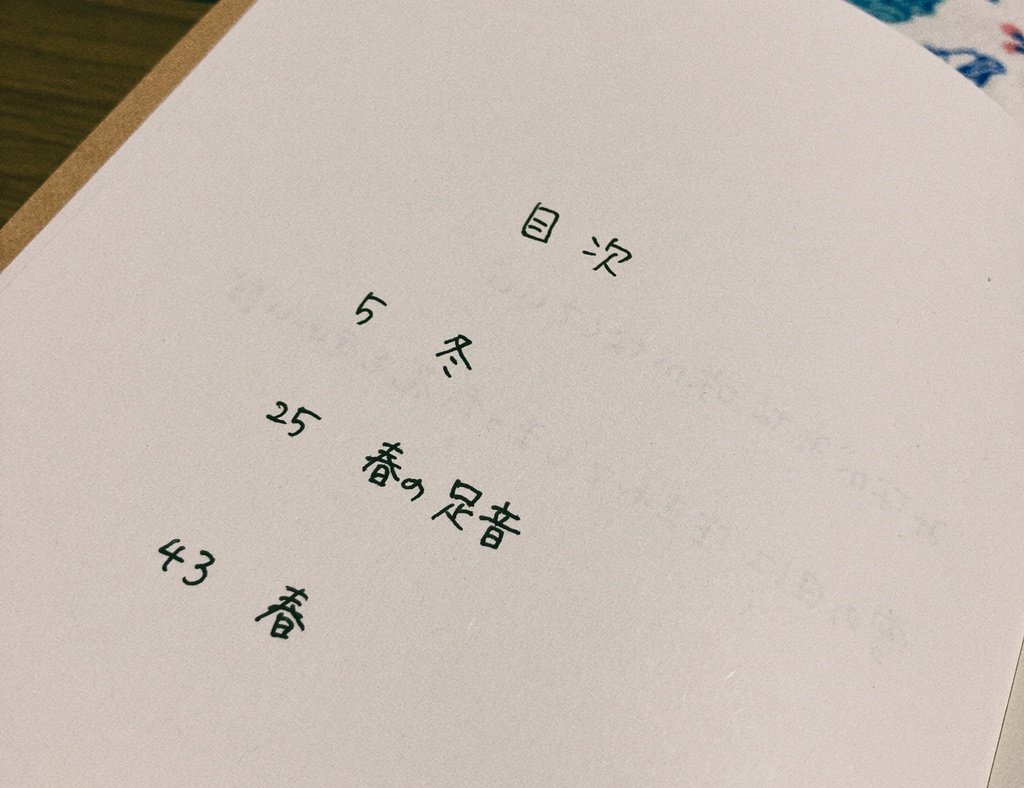 目次
5 冬
25 春の足音
43 春